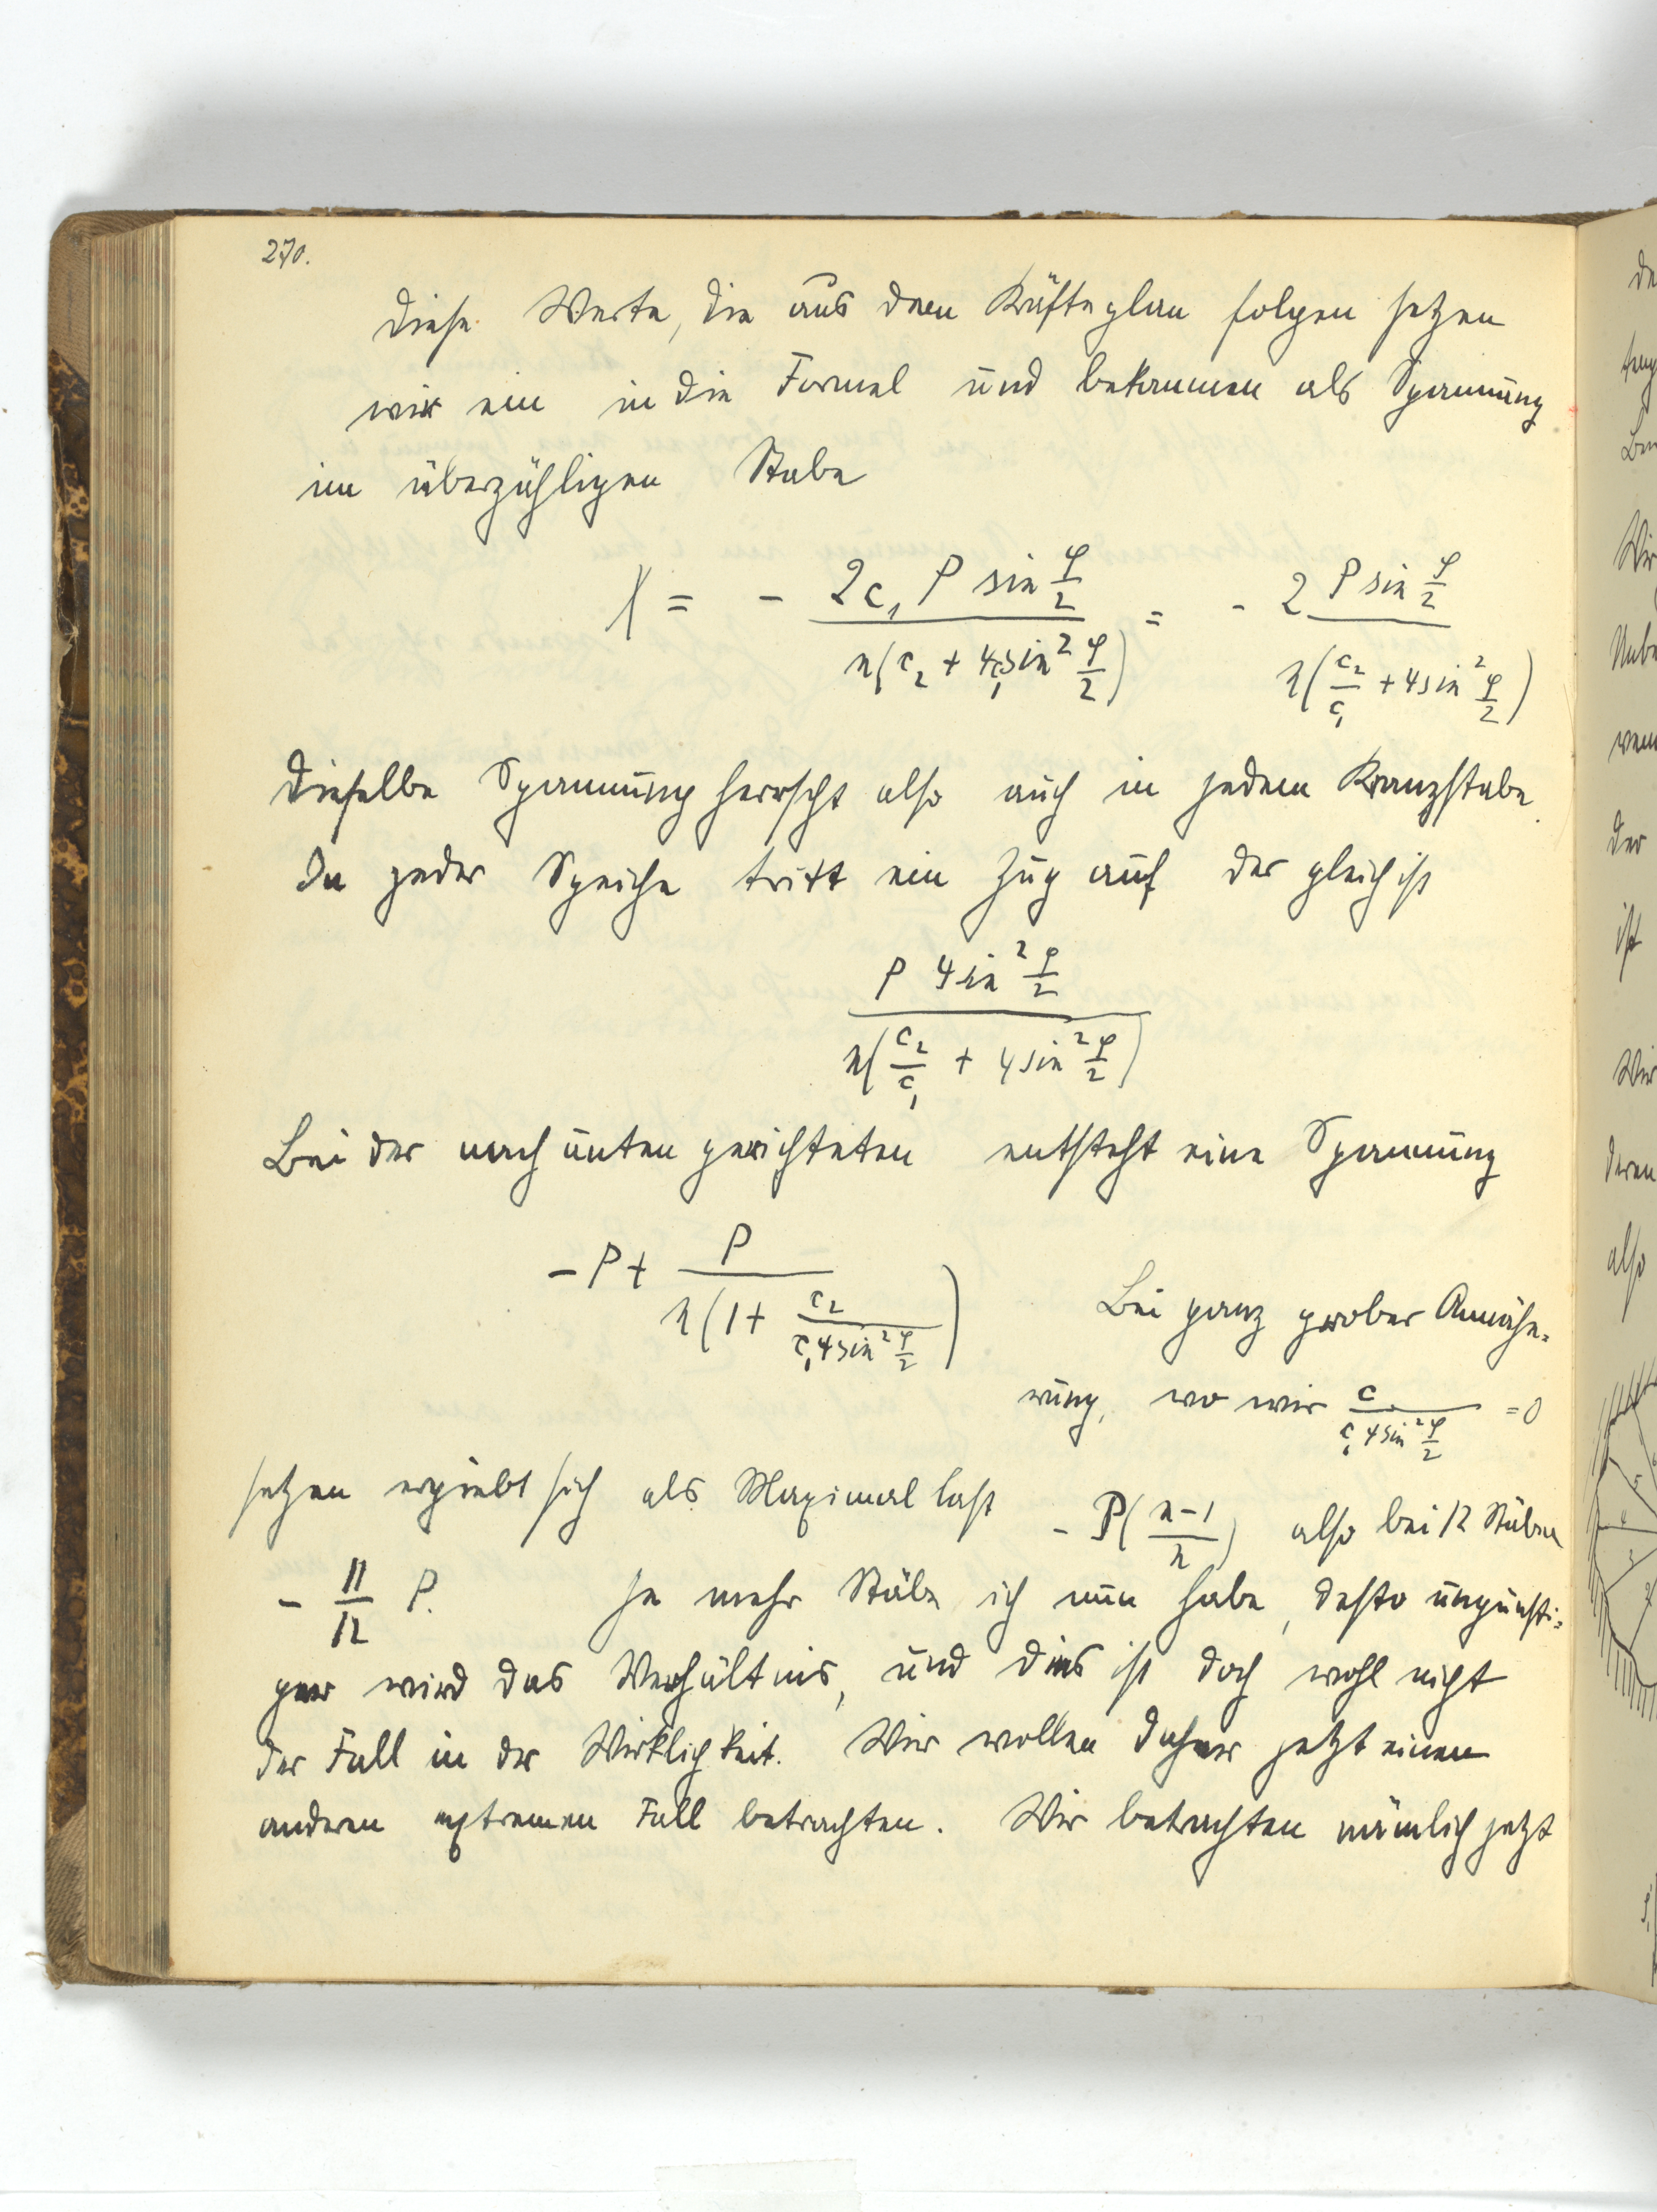 270.
Diese Werte, die aus dem Kräfteplan folgen setzen
wir ein in die Formel und bekommen als Spannung
im überzähligen Stabe
X = - \frac{2c_1 P \sin\frac{φ}{2}}{n(c_2 + 4c_1\sin^2\frac{φ}{2})} = - \frac{2 P \sin\frac{φ}{2}}{n(\frac{c_2}{c_1} + 4\sin^2\frac{φ}{2})}
Dieselbe Spannung herrscht also auch in jedem Kranzstabe.
In jeder Speiche tritt ein Zug auf der gleich ist
\frac{P 4\sin^2\frac{φ}{2}}{n(\frac{c_2}{c_1} + 4\sin^2\frac{φ}{2})}
Bei der nach unten gerichteten entsteht eine Spannung
- P + \frac{P}{n(1 + \frac{c_2}{c_1 4\sin^2\frac{φ}{2}})} Bei ganz grober Annähe-
rung, wo wir \frac{c}{c_1 4\sin^2\frac{φ}{2}} = 0
setzen ergiebt sich als Maximallast - P(\frac{n-1}{n}) also bei 12 Stäben
- \frac{11}{12} P. Je mehr Stäbe ich nun habe, desto ungünsti-
ger wird das Verhältnis, und dies ist doch wohl nicht
der Fall in der Wirklichkeit. Wir wollen daher jetzt einen
anderen extremen Fall betrachten. Wir betrachten nämlich jetzt